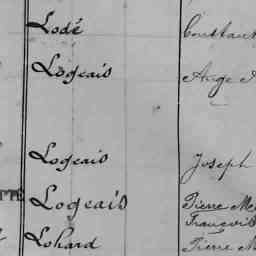 Lodé Constant
Logeais Ange
Logeais Joseph
Logeais Pierre
Lohard Pierre